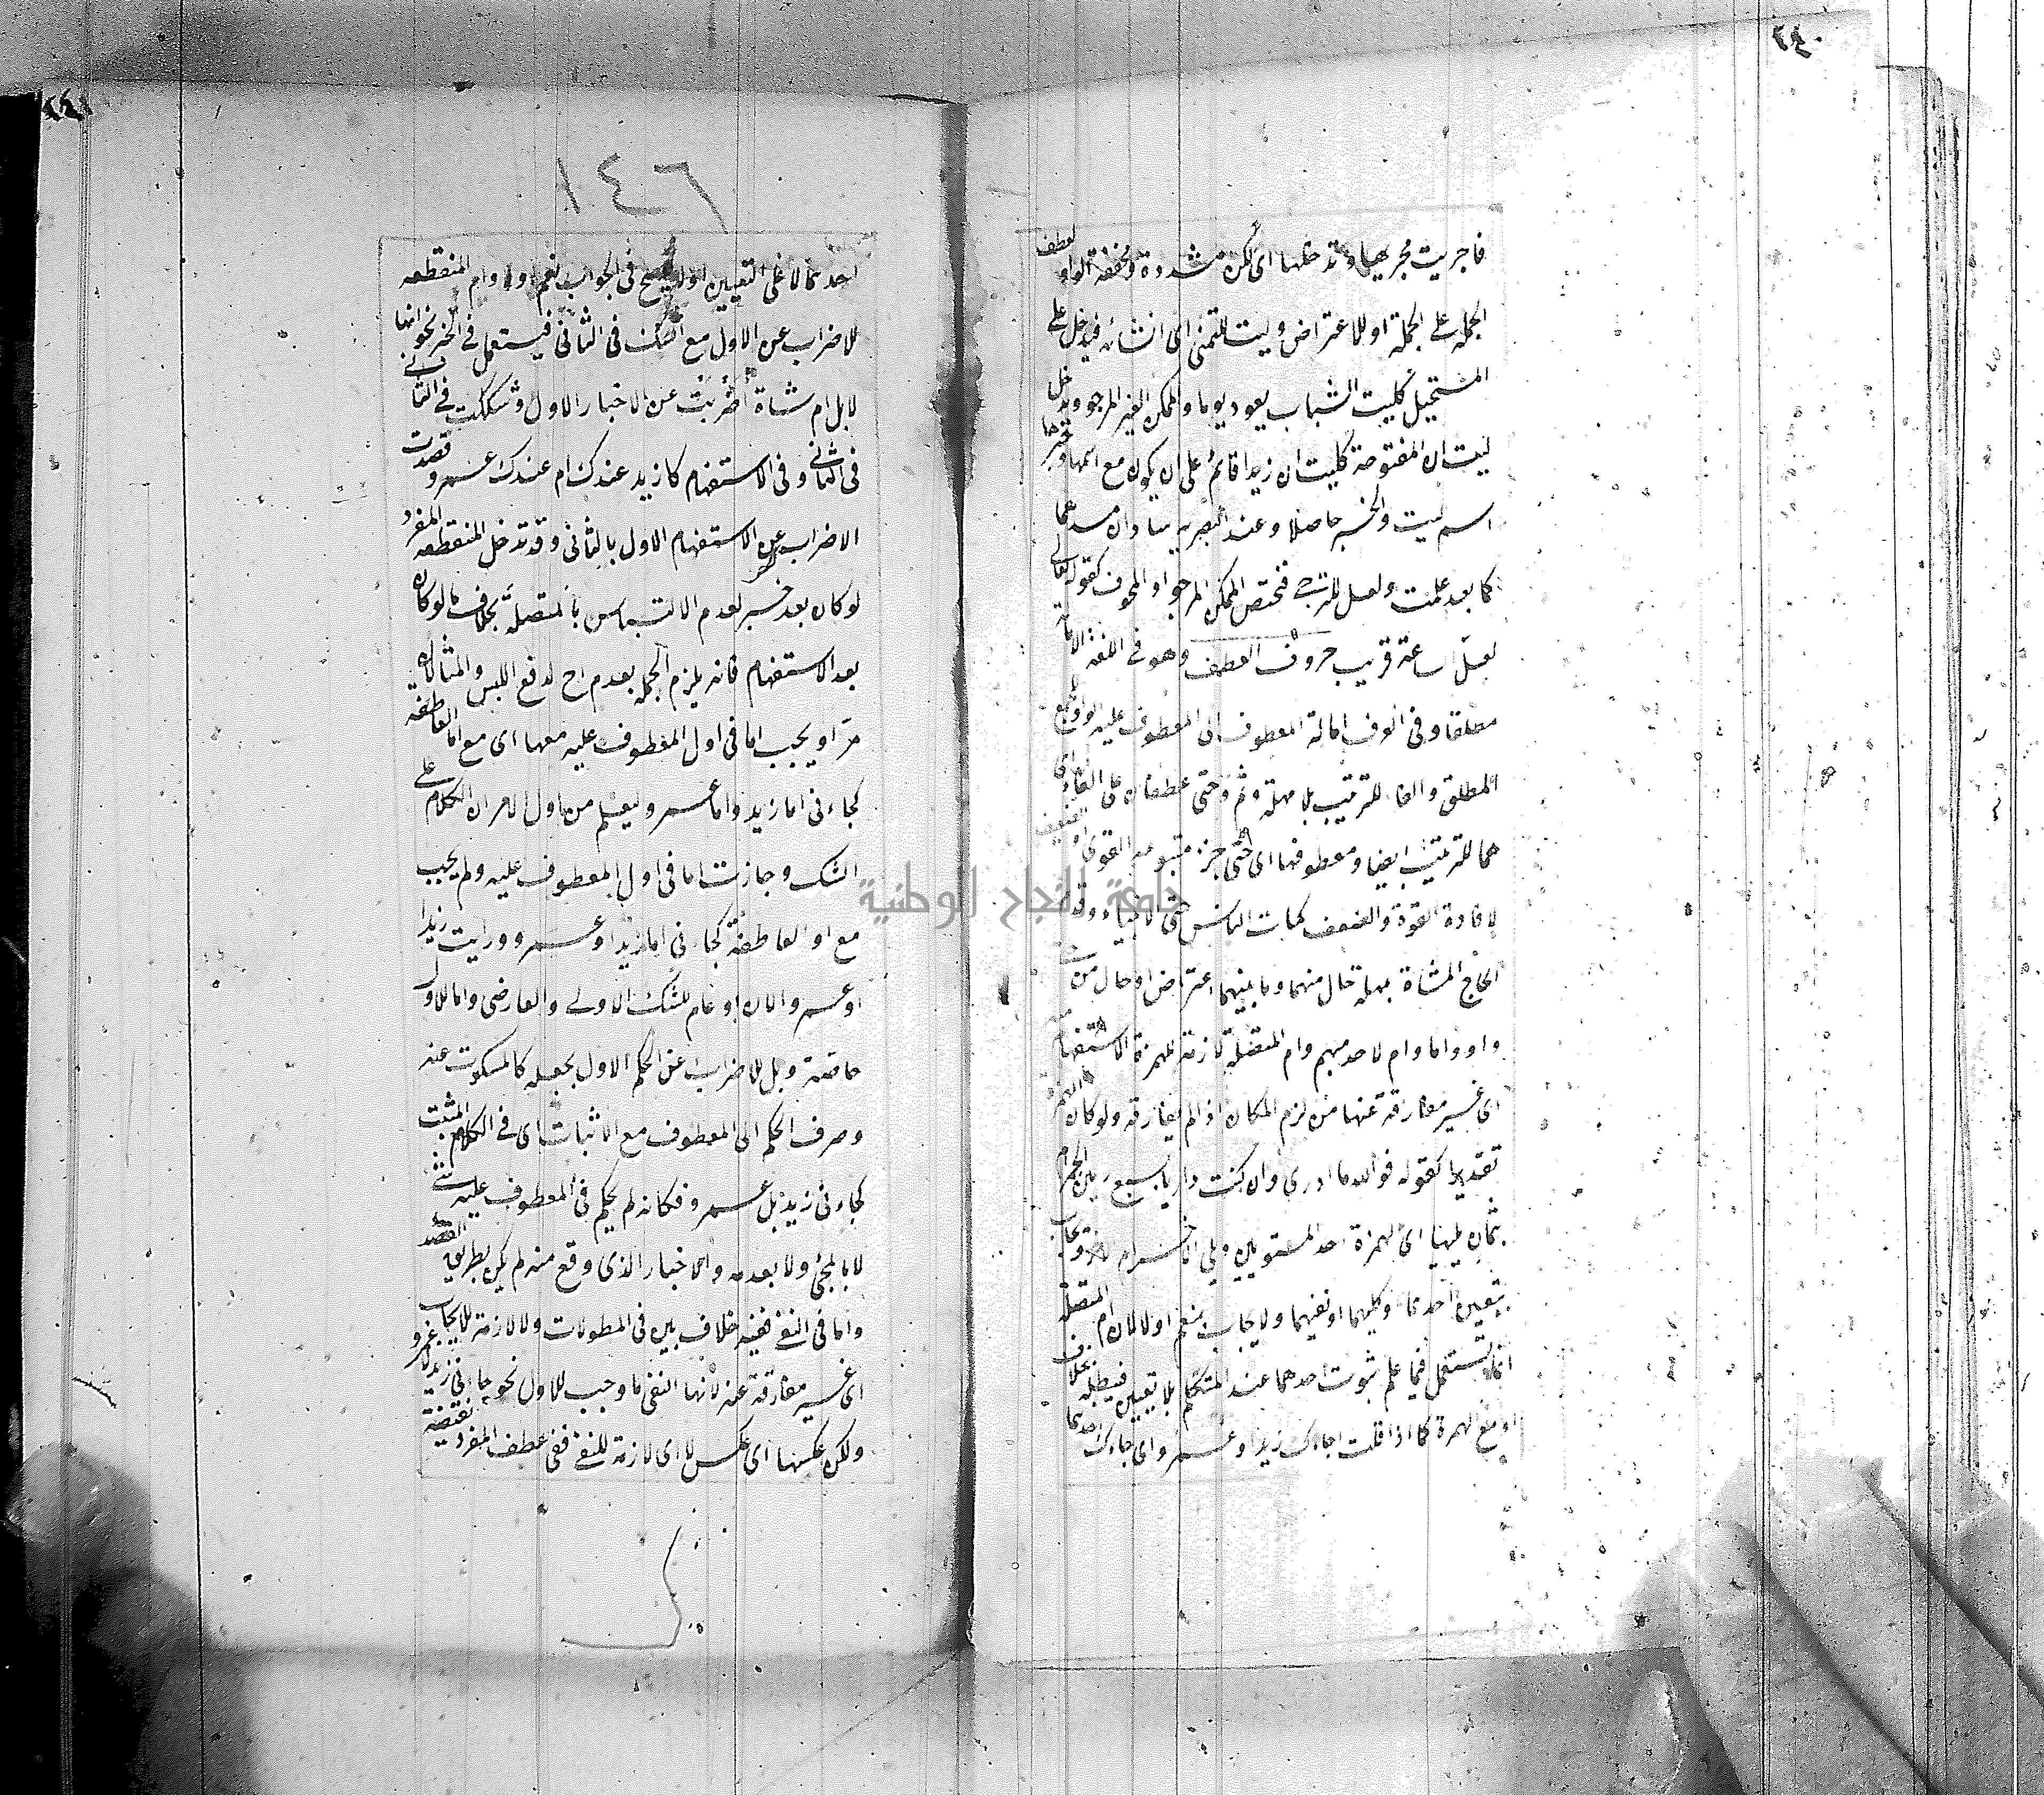 ٢٤٠
فاجريت مجريها وتدخلها اى لكن مشددة ومخففة الواو لعطف
الجملة على الجملة او للاعتراض وليت للتمنى اى انشائه فيدخل على
المستحيل كليت الشباب يعود يوما والممكن الغير المرجو ويدخل
ليت ان المفتوحة كليت ان زيدا قائم على ان يكون مع اسمها وخبرها
اسم ليت والخبر حاصلا وعند البصريه سادان مسدهما
كما بعد علمت ولعل للترجى فتختص الممكن المرجو او المخوف كقوله تعالى
لعل ساعة قريب حروف العطف وهو فى اللغة الامالة
مطلقا وفى العرف امالة المعطوف الى المعطوف عليه الواو للجمع
المطلق والفاء للترتيب بلا مهلة وثم وحتى عطفان على الفاء اى
هما للترتيب ايضا ومعطوفها اى حتى جزء متبوعه القوى او الضعيف
لافادة القوة والضعف كمات الناس حتى الانبياء وقدم
الحاج المشاة بمهلة حال منهما وما بينهما اعتراض او حال من
واو واما وام لاحد مبهم وام المتصلة لازمة لهمزة الاستفهام
اى غير مفارقة عنها من لزم المكان اذا لم يفارقه ولو كان الهمزة
تقديرا كقوله فوالله ما ادري وان كنت داريا بسبع رمين الجمر ام
بثمان يليها اى الهمزة احد المستويين ويلى الاخر ام
بتعيين احدهما او كليهما او نفيهما ولا يجاب بنعم او لا لان ام المتصلة
انما تستعمل فيما علم ثبوت احدهما عند المتكلم بلا تعيين فيطلبه بخلاف
او مع الهمزة كما اذا قلت اجاءك زيد او عمرو اى جاءك احدهما
٢٤١
١٤٦
احدهما لا على التعيين اولا فيصح فى الجواب نعم او لا وام المنقطعه
للاضراب عن الاول مع الشك فى الثانى فيستعمل فى الخبر نحو انها
لابل ام شاة اضربت عن الاخبار الاول وشككت فى الثانى
فى الثانى وفى الاستفهام كازيد عندك ام عندك عمرو قصدت
الاضراب عن الاستفهام الاول بالثانى وقد تدخل المنقطعه المفرد
لو كان بعد خبر لعدم الالتباس بالمتصلة بخلاف ما لو كان
بعد الاستفهام فانه يلزم الجملة بعد ام ح لدفع اللبس والمثالان
مرا ويجب اما فى اول المعطوف عليه معها اى مع اما العاطفه
كجاءنى اما زيد واما عمرو ليعلم من اول الامر ان الكلام على
الشك وجازت اما فى اول المعطوف عليه ولم يجب
مع او العاطفة كجاءنى اما زيد او عمرو ورايت زيدا
او عمروا لان او عام للشك الاولى والعارضى واما للاول
خاصة وبل للاضراب عن الحكم الاول بجعله كالمسكوت عنه
وصرف الحكم الى المعطوف مع الاثبات اى فى الكلام المثبت
كجاءنى زيد بل عمرو فكانه لم يحكم فى المعطوف عليه شئ
لا بالمجئ ولا بعدمه والاخبار الذى وقع منه لم يكن بطريق القصد
واما فى النفى ففيه خلاف بين فى المطولات ولا لازمة للايجاب
اى غير مفارقة عنه لانها النفى ما وجب للاول نحو جاءنى زيد لا عمرو
ولكن عكسها اى عكس لا اى لازمة للنفى ففى عطف المفرد نقيضة
جامعة النجاح الوطنية